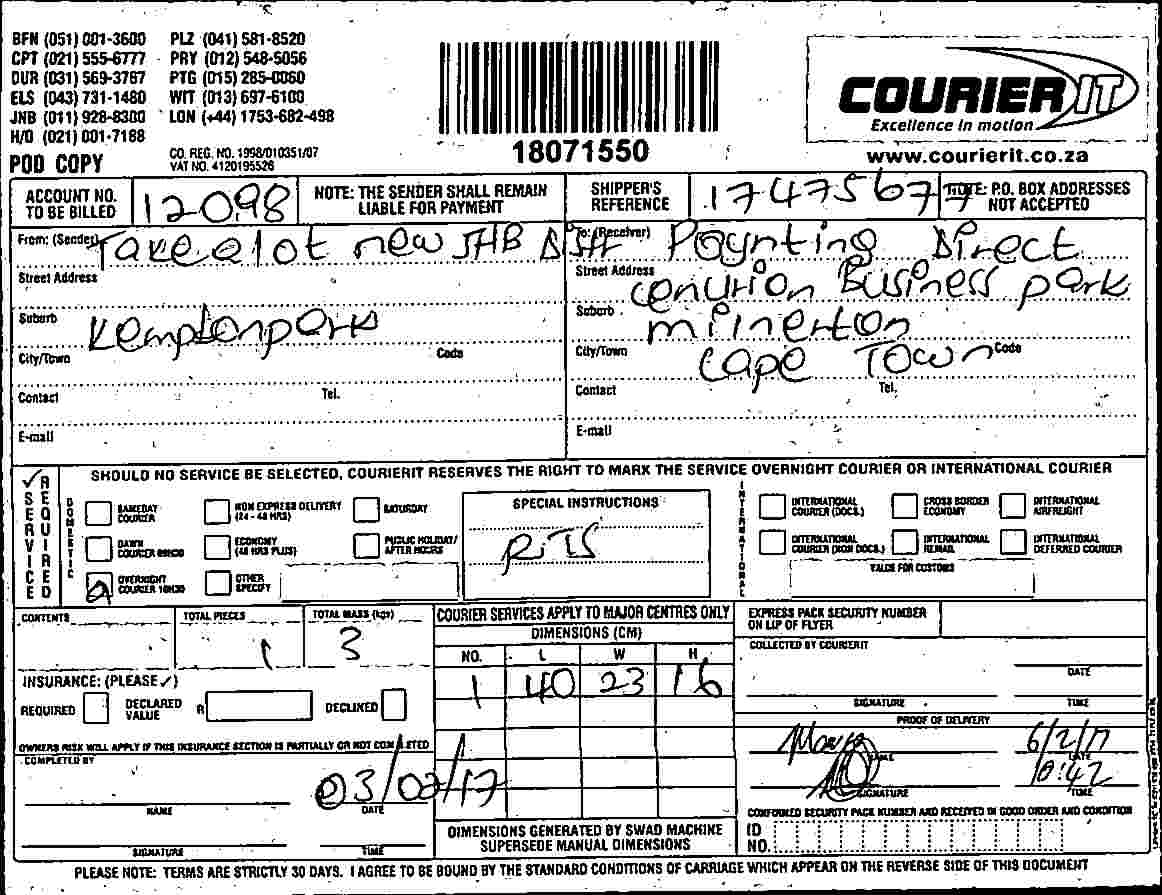 BFN (051) 001-3600 PLZ (041) 581-8520
CPT (021) 555-6777 PRY (012) 548-5056
DUR (031) 569-3767 PTG (015) 285-0060
ELS (043) 731-1480 WIT (013) 697-6100
JNB (011) 928-8300 LON (+44) 1753-682-498
H/O (021) 001-7188
POD COPY
CO. REG. NO. 1998/010351/07
VAT NO. 4120195526
18071550
COURIER IT
Excellence in motion
www.courierit.co.za
ACCOUNT NO. TO BE BILLED 12098
NOTE: THE SENDER SHALL REMAIN LIABLE FOR PAYMENT
SHIPPER'S REFERENCE 17475677
NOTE: P.O. BOX ADDRESSES NOT ACCEPTED
From: (Sender) Takealot new JHB
Street Address
Suburb Kemptonpark
City/Town Code
Contact Tel.
E-mail
To: (Receiver) Poynting Direct
Street Address Cenurion Business park
Suburb milnerton
City/Town Cape Town Code
Contact Tel.
E-mail
SHOULD NO SERVICE BE SELECTED, COURIERIT RESERVES THE RIGHT TO MARK THE SERVICE OVERNIGHT COURIER OR INTERNATIONAL COURIER
✓ SERVICE REQUIRED
DOMESTIC
SAMEDAY COURIER
NON EXPRESS DELIVERY (24 - 48 HRS)
SATURDAY
DAWN COURIER 09H00
ECONOMY (48 HRS PLUS)
PUBLIC HOLIDAY/ AFTER HOURS
OVERNIGHT COURIER 10H30
OTHER SPECIFY
SPECIAL INSTRUCTIONS
RTS
INTERNATIONAL
INTERNATIONAL COURIER (DOCS.)
CROSS BORDER ECONOMY
INTERNATIONAL AIRFREIGHT
INTERNATIONAL COURIER (NON DOCS.)
INTERNATIONAL REMAIL
INTERNATIONAL DEFERRED COURIER
VALUE FOR CUSTOMS
CONTENTS
TOTAL PIECES 1
TOTAL MASS (kgs) 3
INSURANCE: (PLEASE ✓)
REQUIRED DECLARED VALUE R DECLINED
OWNERS RISK WILL APPLY IF THIS INSURANCE SECTION IS PARTIALLY OR NOT COMPLETED
COMPLETED BY
NAME
03/02/17
DATE
SIGNATURE TIME
COURIER SERVICES APPLY TO MAJOR CENTRES ONLY
DIMENSIONS (CM)
NO. L W H
1 40 23 16
DIMENSIONS GENERATED BY SWAD MACHINE SUPERSEDE MANUAL DIMENSIONS
EXPRESS PACK SECURITY NUMBER ON LIP OF FLYER
COLLECTED BY COURIERIT
DATE
SIGNATURE TIME
PROOF OF DELIVERY
6/2/17
NAME DATE
10:42
SIGNATURE TIME
CONFIRMED SECURITY PACK NUMBER AND RECEIVED IN GOOD ORDER AND CONDITION
ID NO.
PLEASE NOTE: TERMS ARE STRICTLY 30 DAYS. I AGREE TO BE BOUND BY THE STANDARD CONDITIONS OF CARRIAGE WHICH APPEAR ON THE REVERSE SIDE OF THIS DOCUMENT